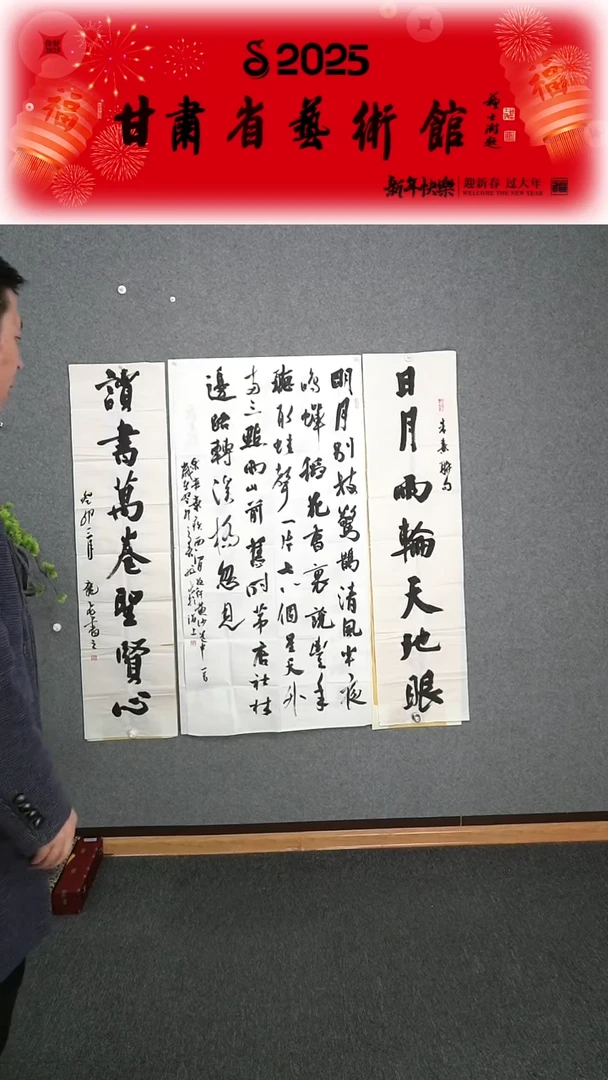 2025
甘肅省藝術館
新年快樂
迎新春 过大年
WELCOME THE NEW YEAR
福
福
日月兩輪天地眼
明月別枝驚鵲清風半夜
鳴蟬稻花香裏說豐年
聽取蛙聲一片七八個星天外
兩三點雨山前舊時茅店社林
邊路轉溪橋忽見
讀書萬卷聖賢心
癸卯三月